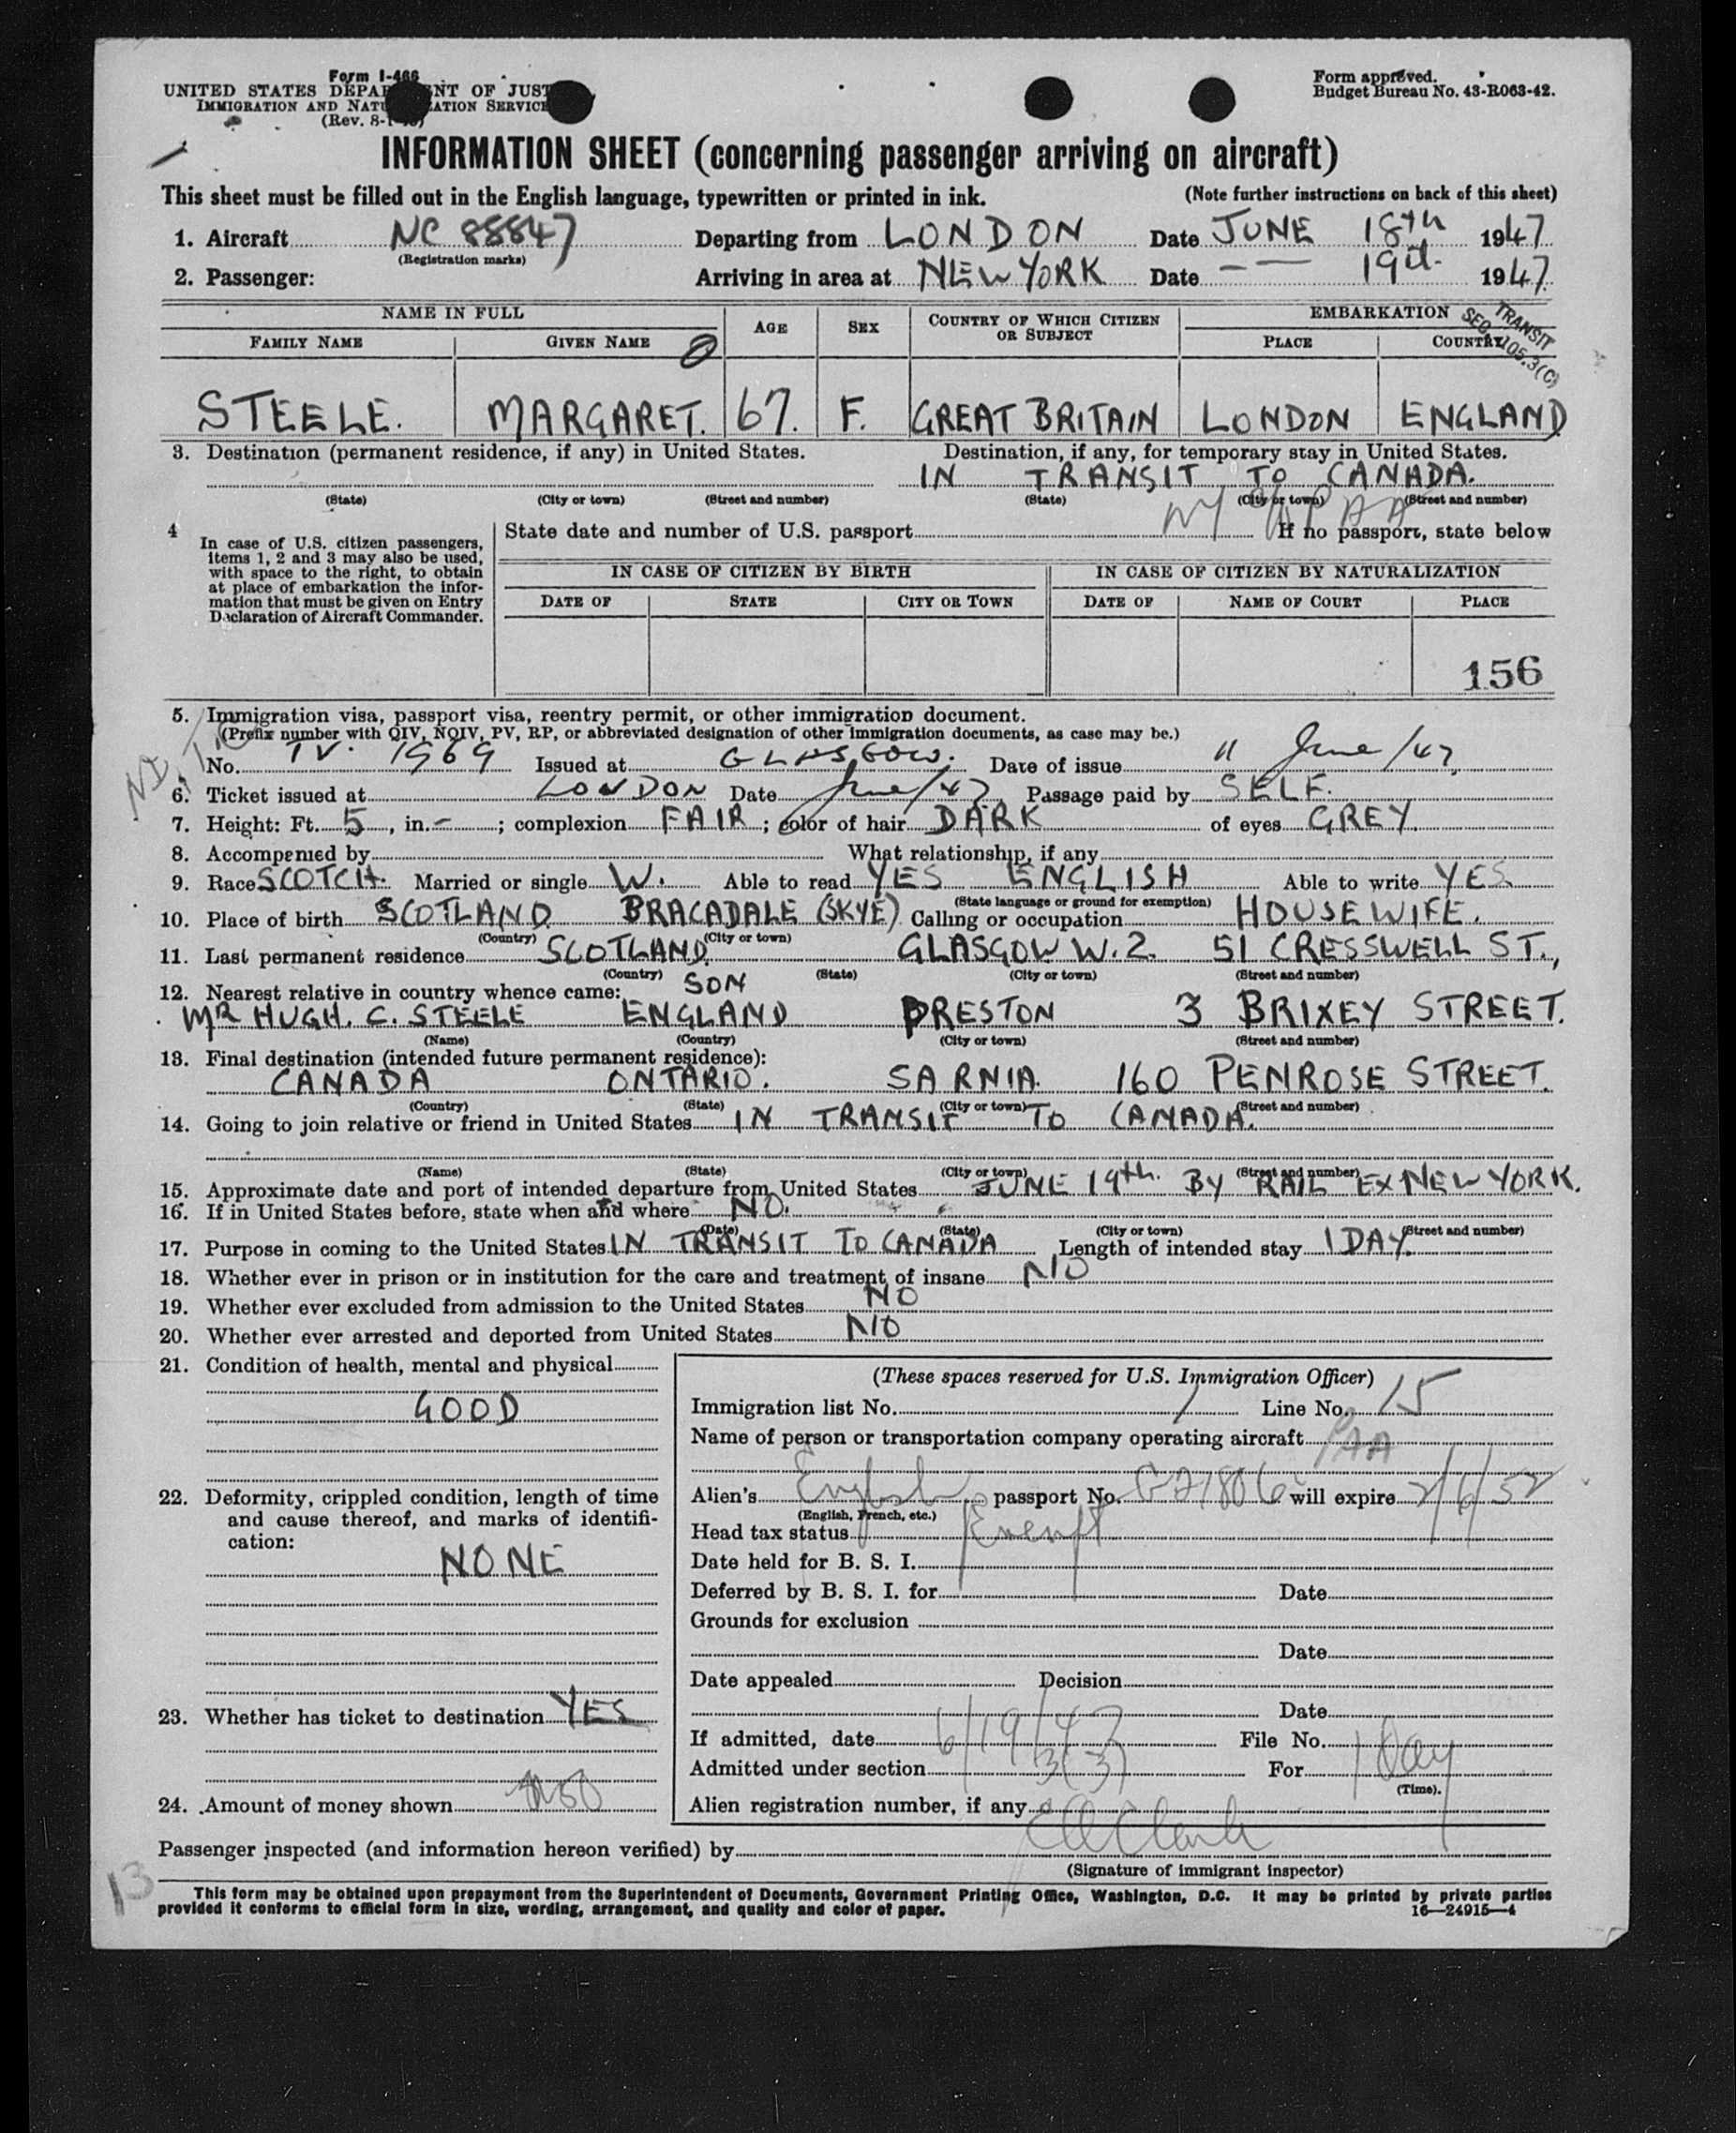 Form I-466
UNITED STATES DEPARTMENT OF JUSTICE
IMMIGRATION AND NATURALIZATION SERVICE
(Rev. 8-1-45)
Form approved.
Budget Bureau No. 43-R063-42.
INFORMATION SHEET (concerning passenger arriving on aircraft)
This sheet must be filled out in the English language, typewritten or printed in ink. (Note further instructions on back of this sheet)
1. Aircraft NC 88847 Departing from LONDON Date JUNE 18th 1947
(Registration marks)
2. Passenger: Arriving in area at NEW YORK Date — — 19th 1947.
NAME IN FULL AGE SEX COUNTRY OF WHICH CITIZEN OR SUBJECT EMBARKATION
FAMILY NAME GIVEN NAME PLACE COUNTRY
TRANSIT
SEC. 105.3(C)
STEELE. MARGARET. 67. F. GREAT BRITAIN LONDON ENGLAND
3. Destination (permanent residence, if any) in United States. Destination, if any, for temporary stay in United States.
IN TRANSIT TO CANADA.
(State) (City or town) (Street and number) (State) (City or town) (Street and number)
4 In case of U.S. citizen passengers, items 1, 2 and 3 may also be used, with space to the right, to obtain at place of embarkation the information that must be given on Entry Declaration of Aircraft Commander.
State date and number of U.S. passport If no passport, state below
IN CASE OF CITIZEN BY BIRTH IN CASE OF CITIZEN BY NATURALIZATION
DATE OF STATE CITY OR TOWN DATE OF NAME OF COURT PLACE
156
5. Immigration visa, passport visa, reentry permit, or other immigration document.
(Prefix number with QIV, NQIV, PV, RP, or abbreviated designation of other immigration documents, as case may be.)
No. TV. 1969 Issued at GLASGOW. Date of issue 11 June/47.
6. Ticket issued at LONDON Date June/47 Passage paid by SELF.
7. Height: Ft. 5, in. -; complexion FAIR; color of hair DARK of eyes GREY.
8. Accompanied by What relationship, if any
9. Race SCOTCH. Married or single W. Able to read YES ENGLISH Able to write YES
(State language or ground for exemption)
10. Place of birth SCOTLAND BRACADALE (SKYE) Calling or occupation HOUSEWIFE.
(Country) (City or town)
11. Last permanent residence SCOTLAND. GLASGOW W.2. 51 CRESSWELL ST.,
(Country) (State) (City or town) (Street and number)
12. Nearest relative in country whence came: SON
MR HUGH. C. STEELE ENGLAND PRESTON 3 BRIXEY STREET.
(Name) (Country) (City or town) (Street and number)
13. Final destination (intended future permanent residence):
CANADA ONTARIO. SARNIA. 160 PENROSE STREET.
(Country) (State) (City or town) (Street and number)
14. Going to join relative or friend in United States IN TRANSIT TO CANADA.
(Name) (State) (City or town) (Street and number)
15. Approximate date and port of intended departure from United States JUNE 19th. BY RAIL EX NEW YORK.
16. If in United States before, state when and where NO.
(Date) (State) (City or town) (Street and number)
17. Purpose in coming to the United States IN TRANSIT TO CANADA Length of intended stay 1 DAY.
18. Whether ever in prison or in institution for the care and treatment of insane NO
19. Whether ever excluded from admission to the United States NO
20. Whether ever arrested and deported from United States NO
21. Condition of health, mental and physical
GOOD
22. Deformity, crippled condition, length of time and cause thereof, and marks of identification:
NONE
23. Whether has ticket to destination YES
24. Amount of money shown
(These spaces reserved for U.S. Immigration Officer)
Immigration list No. 1 Line No. 15
Name of person or transportation company operating aircraft PAA
Alien's English passport No. will expire 2/6/52
(English, French, etc.)
Head tax status Exempt
Date held for B. S. I.
Deferred by B. S. I. for Date
Grounds for exclusion
Date
Date appealed Decision
Date
If admitted, date 6/19/47 File No.
Admitted under section 3(3) For 1 Day
(Time).
Alien registration number, if any
Passenger inspected (and information hereon verified) by
(Signature of immigrant inspector)
13
This form may be obtained upon prepayment from the Superintendent of Documents, Government Printing Office, Washington, D.C. It may be printed by private parties
provided it conforms to official form in size, wording, arrangement, and quality and color of paper. 16—24915—4